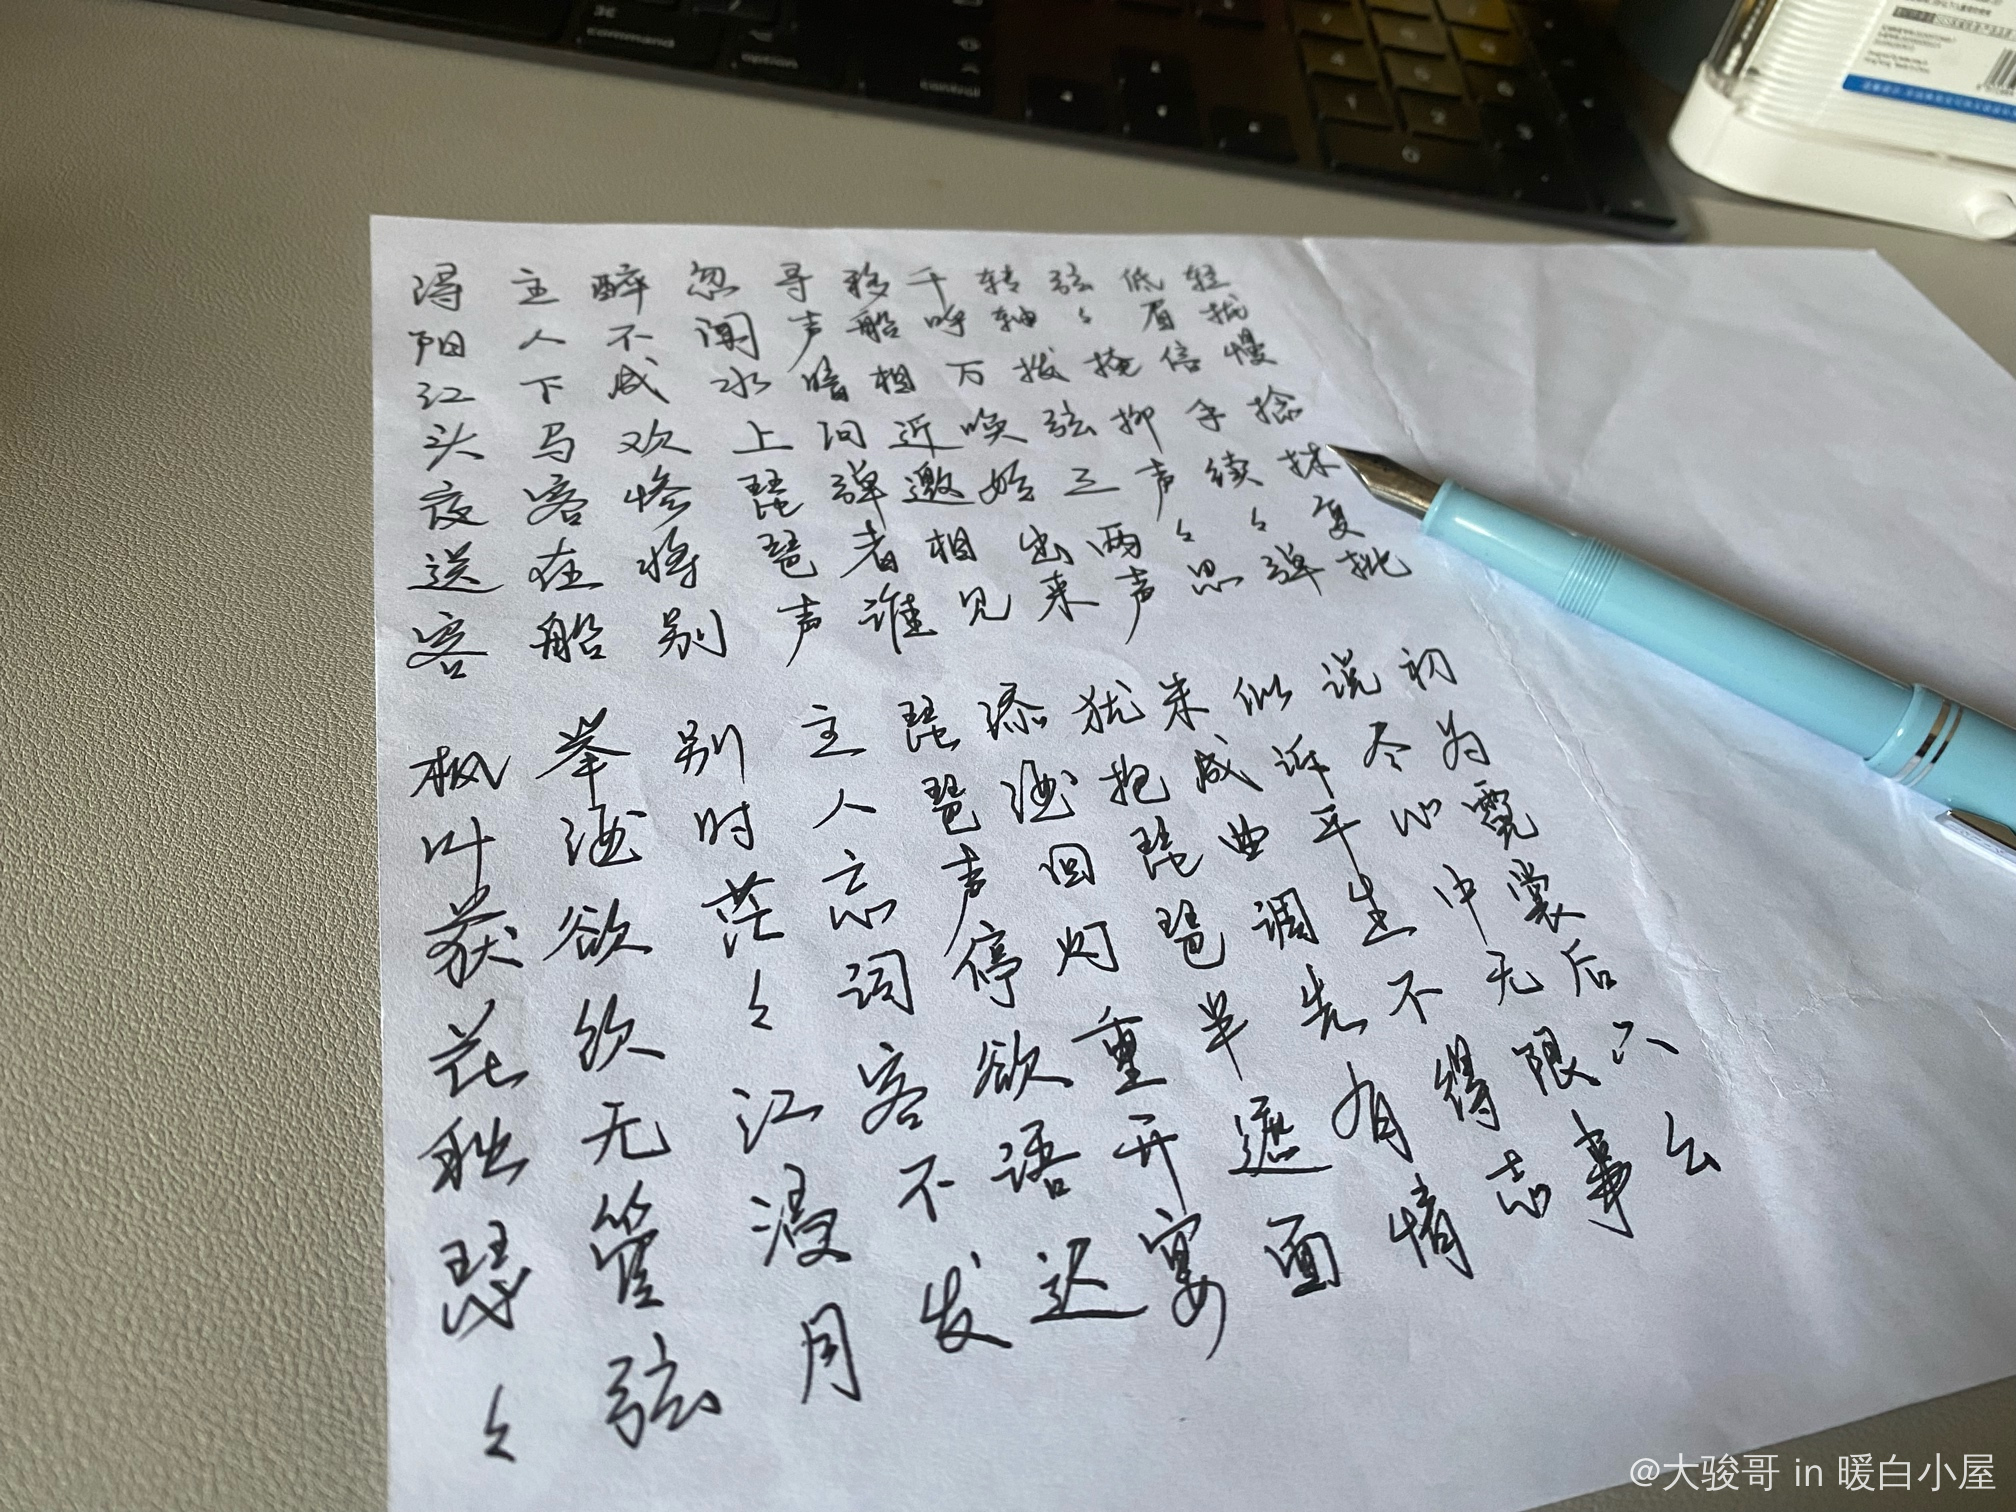 浔阳江头夜送客
枫叶荻花秋瑟々
主人下马客在船
举酒欲饮无管弦
醉不成欢惨将别
别时茫々江浸月
忽闻水上琵琶声
主人忘词客不发
寻声暗问弹者谁
琵琶声停欲语迟
移船相近邀相见
添酒回灯重开宴
千呼万唤始出来
犹抱琵琶半遮面
转轴拨弦三两声
未成曲调先有情
弦々掩抑声々思
似诉平生不得志
低眉信手续々弹
说尽心中无限事
轻拢慢捻抹复挑
初为霓裳后六么
command
option
control
@大骏哥 in 暖白小屋